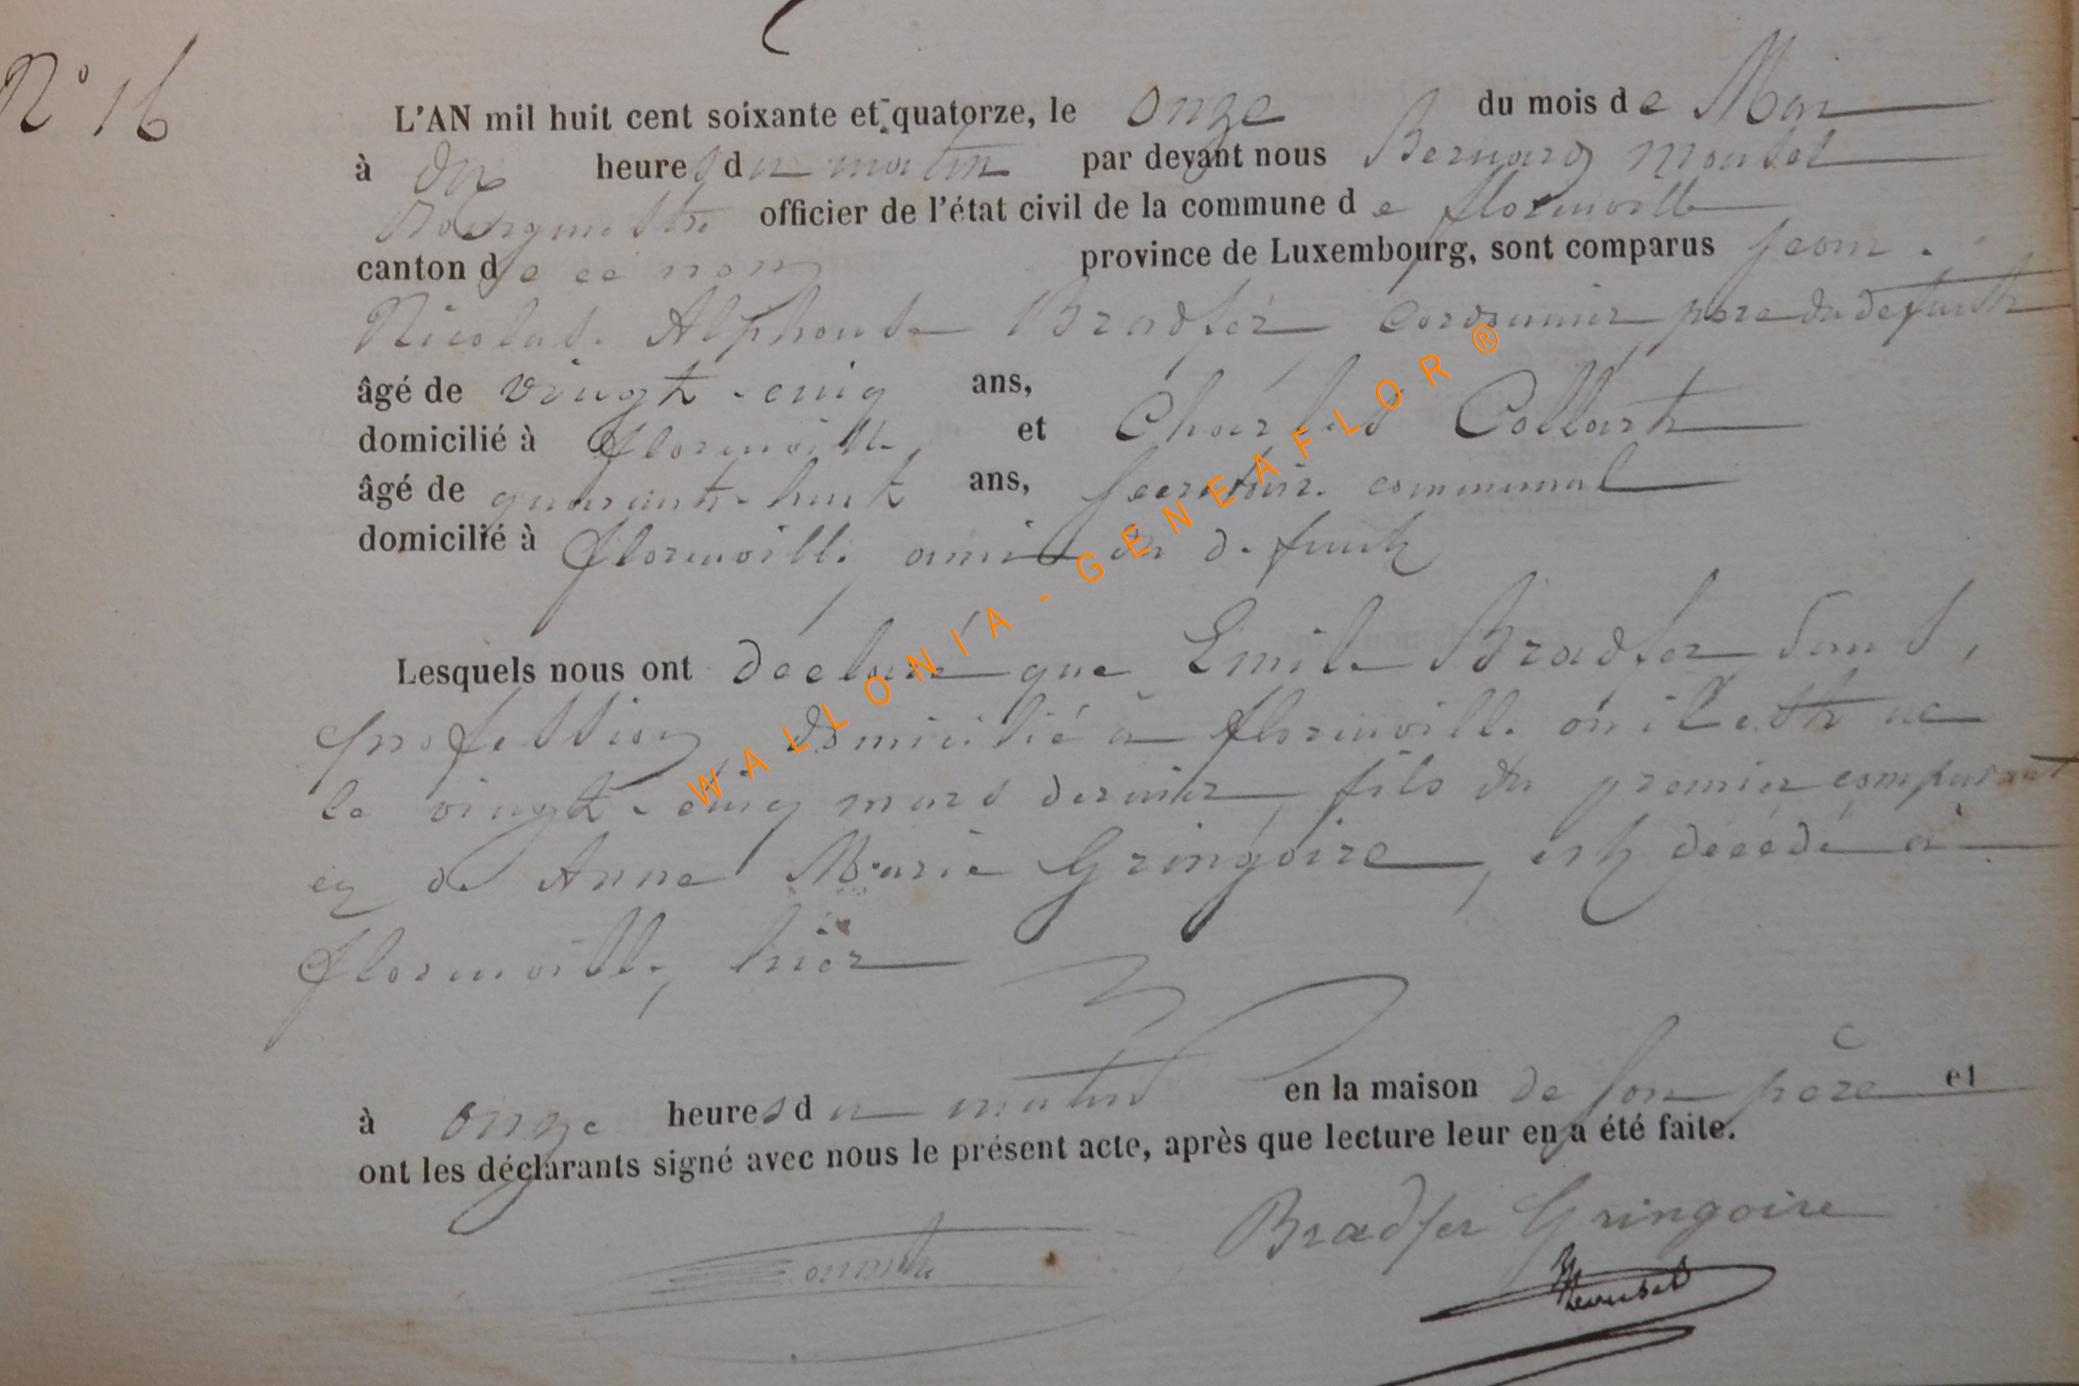 N° 16
L'AN mil huit cent soixante et quatorze, le onze du mois de Mai
à dix heures du matin par devant nous Bernard Mousel
Bourgmestre officier de l'état civil de la commune de florenville
canton de ce nom province de Luxembourg, sont comparus Jean
Nicolas Alphonse Bradfer Cordonnier père du défunt
âgé de vingt-cinq ans,
domicilié à florenville et Charles Collart
âgé de quarante-huit ans, secrétaire communal
domicilié à florenville amis du défunt
Lesquels nous ont déclaré que Emile Bradfer sans
profession domicilié à florenville où il est né
le vingt-cinq mars dernier, fils du premier comparant
et de Anne Marie Gringoire, est décédé à
florenville, hier
à onze heures du matin en la maison de son père et
ont les déclarants signé avec nous le présent acte, après que lecture leur en a été faite.
Bradfer Gringoire
Mousel
WALLONIA - GENEAFLOR ®